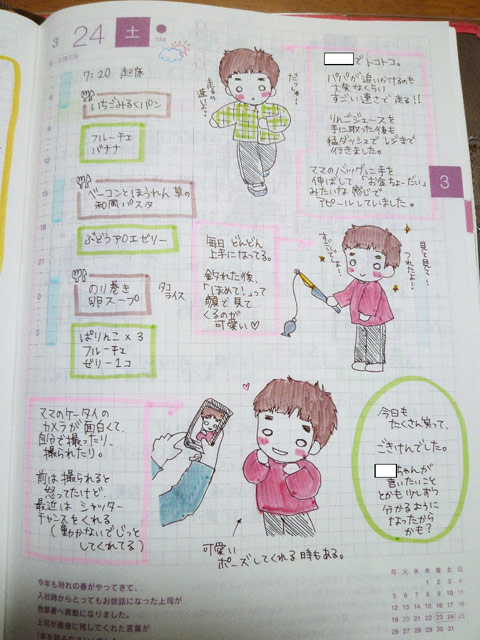 3
24
土
7:20 起床
いちごみるくパン
フルーチェ
バナナ
ベーコンとほうれん草の
和風パスタ
ぶどうアロエゼリー
のり巻き
卵スープ
タコ
ライス
ぱりんこ×3
フルーチェ
ゼリー1コ
でトコトコ。
パパが追いかけるのも
大変なくらい
すごい速さで走る!!
りんごジュースを
手に取った後も
猛ダッシュでレジまで
行きました。
ママのバッグに手を
伸ばして「お金ちょーだい」
みたいな感じで
アピールしていました。
3
毎日 どんどん
上手になってる。
釣れた後、
「ほめて!」って
顔で見て
くるのが
可愛い♡
見て見て〜
つれたよ!
ママのケータイの
カメラが面白くて、
自分で撮ったり、
撮られたり。
前は撮られると
怒ってたけど、
最近はシャッター
チャンスをくれる
(動かないでじっと
してくれてる)
可愛い
ポーズしてくれる時もある。
今日も
たくさん笑って、
ごきげんでした。
ちゃんが
言いたいこと
とかも少しずつ
分かるように
なったから
かも?
今年も別れの春がやってきて、
入社時からとってもお世話になった上司が
他部署へ異動になりました。
上司が最後に残してくれた言葉が
月 火 水 木 金 土 日
1 2 3 4
5 6 7 8 9 10 11
12 13 14 15 16 17 18
19 20 21 22 23 24 25
26 27 28 29 30 31